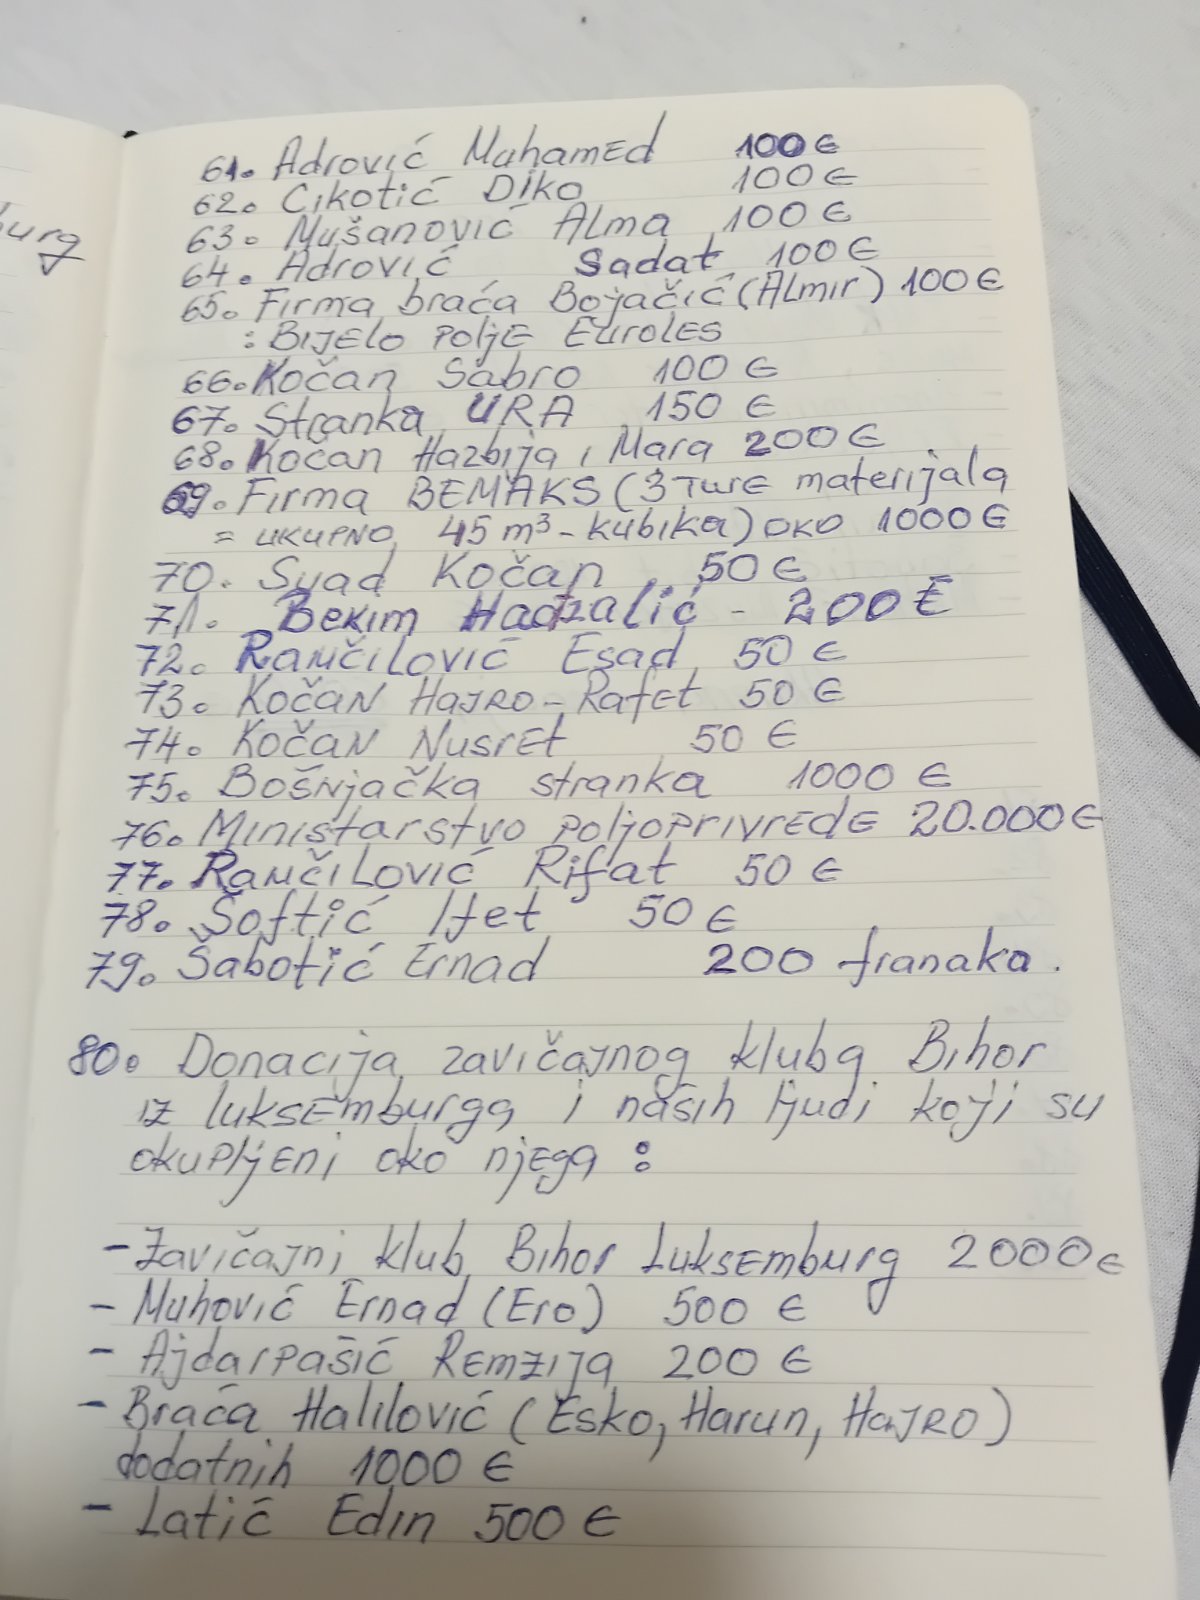 burg
61. Adrović Muhamed 100 €
62. Cikotić Diko 100 €
63. Mušanović Alma 100 €
64. Adrović Sadat 100 €
65. Firma braća Bojačić (Almir) 100 €
: Bijelo Polje Euroles
66. Kočan Sabro 100 €
67. Stranka URA 150 €
68. Kočan Hazbija i Mara 200 €
69. Firma BEMAKS (3 ture materijala
= ukupno 45 m³ - kubika) oko 1000 €
70. Suad Kočan 50 €
71. Bekim Hadzalić - 200 €
72. Ramčilović Esad 50 €
73. Kočan Hajro - Rafet 50 €
74. Kočan Nusret 50 €
75. Bošnjačka stranka 1000 €
76. Ministarstvo poljoprivrede 20.000 €
77. Ramčilović Rifat 50 €
78. Šoftić Ifet 50 €
79. Šabotić Ernad 200 franaka.
80. Donacija zavičajnog kluba Bihor
iz luksemburga i naših ljudi koji su
okupljeni oko njega :
- Zavičajni klub Bihor Luksemburg 2000 €
- Muhović Ernad (Ero) 500 €
- Ajdarpašić Remzija 200 €
- Braća Halilović (Esko, Harun, Hajro)
dodatnih 1000 €
- Latić Edin 500 €